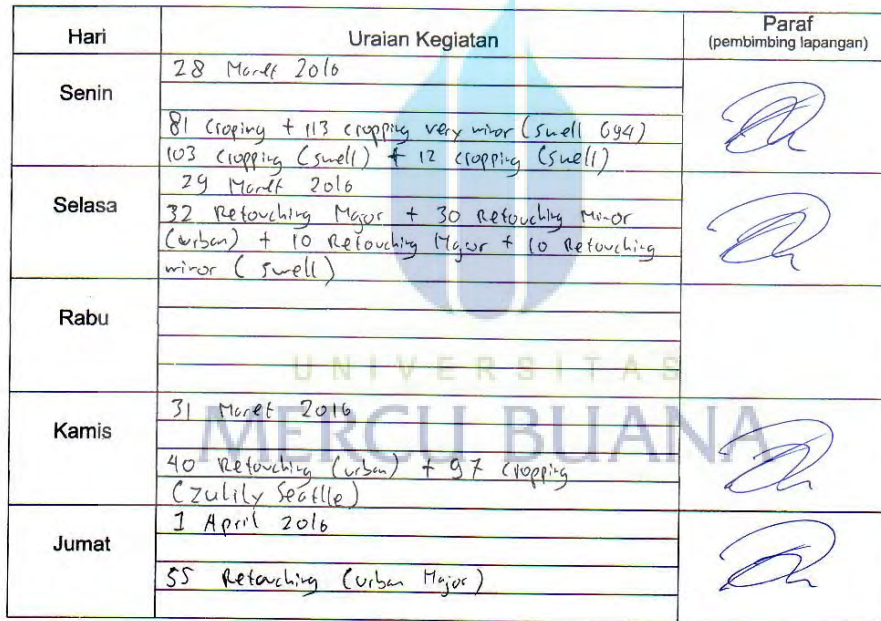 Hari Uraian Kegiatan Paraf
(pembimbing lapangan)
Senin
28 Maret 2016
81 Croping + 113 cropping very minor (swell 694)
103 cropping (swell) + 12 cropping (swell)
Selasa
29 Maret 2016
32 Retouching Major + 30 Retouching Minor
(urban) + 10 Retouching Major + 10 Retouching
minor (swell)
Rabu
UNIVERSITAS
MERCU BUANA
Kamis
31 Maret 2016
40 Retouching (urban) + 97 Cropping
(Zulily Seattle)
Jumat
1 April 2016
55 Retouching (urban Major)